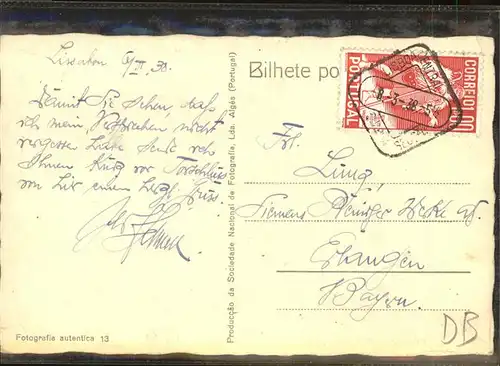 Lissabon 6/V 38.
Damit Sie sehen, daß
ich mein Versprechen nicht
vergessen habe sende ich
Ihnen kurz vor Torschluss
von hier einen Gruss.
Fotografia autentica 13
Producção da Sociedade Nacional de Fotografia, Lda. Algés (Portugal)
Bilhete po
CORREIO 1,00
PORTUGAL
Frl.
Lung,
Siemens Reiniger Werke A.
Erlangen
Bayern.
DB